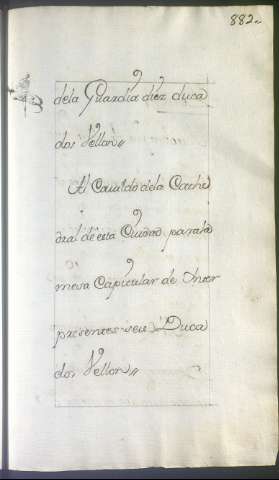 882.
dela Guardia diez duca
dos Vellon,,
Al Cavildo dela Cathe
dral de esta Ciudad para la
mesa Capitular de Inter
presentes seis Duca
dos Vellon,,